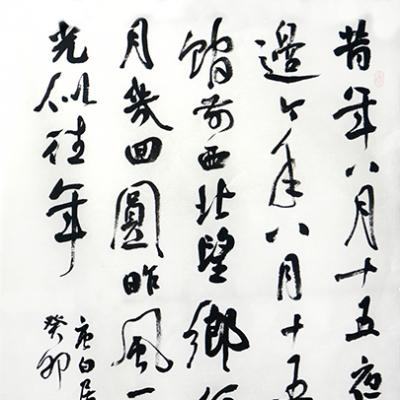 昔年八月十五夜
邊今年八月十五
館前西北望鄉
月幾回圓昨風一
光似往年
唐白居
癸卯